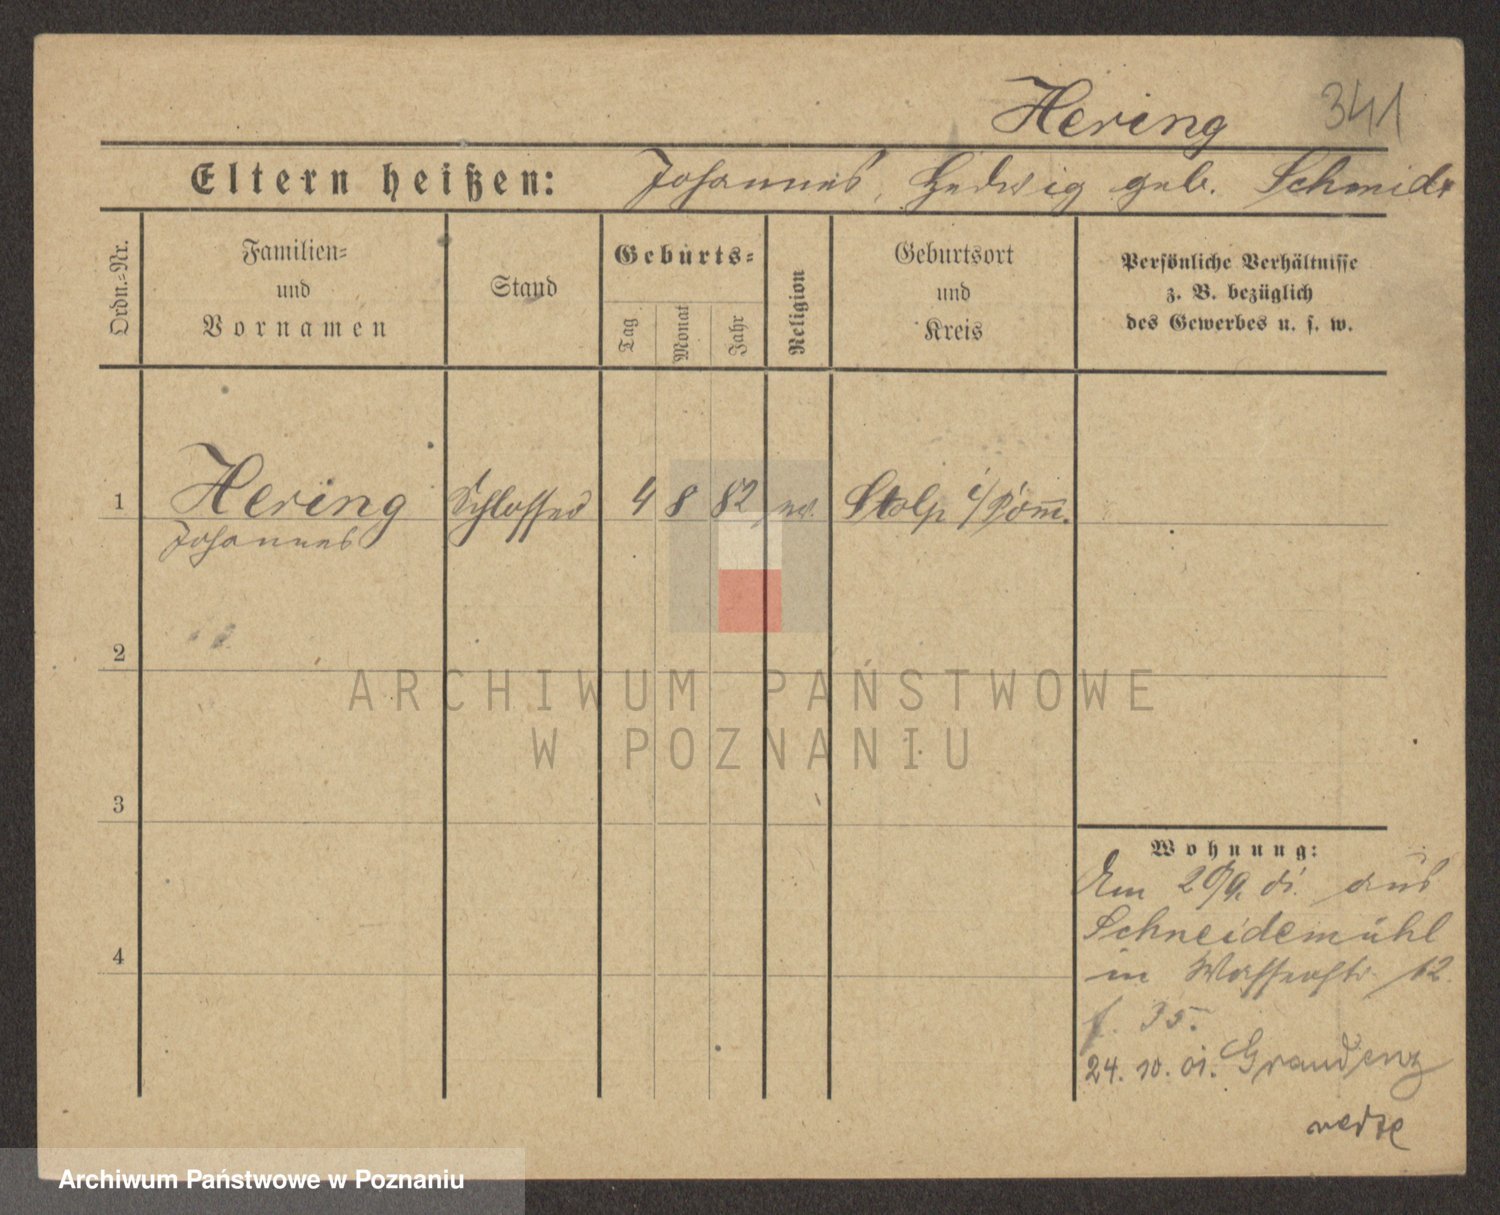 Hering 341
Eltern heißen: Johannes, Hedwig geb. Schmidt
Ordn.-Nr.
Familien-
und
Vornamen
Stand
Geburts-
Tag
Monat
Jahr
Religion
Geburtsort
und
Kreis
Persönliche Verhältnisse
z. B. bezüglich
des Gewerbes u. s. w.
1 Hering Schlosser 4 8 82 ev. Stolp i/Pomm.
Johannes
2
3
4
Wohnung:
Am aus
Schneidemühl
in Wasserstr. 12
f. 35.
24. 10. 01. Graudenz
ARCHIWUM PAŃSTWOWE
W POZNANIU
Archiwum Państwowe w Poznaniu